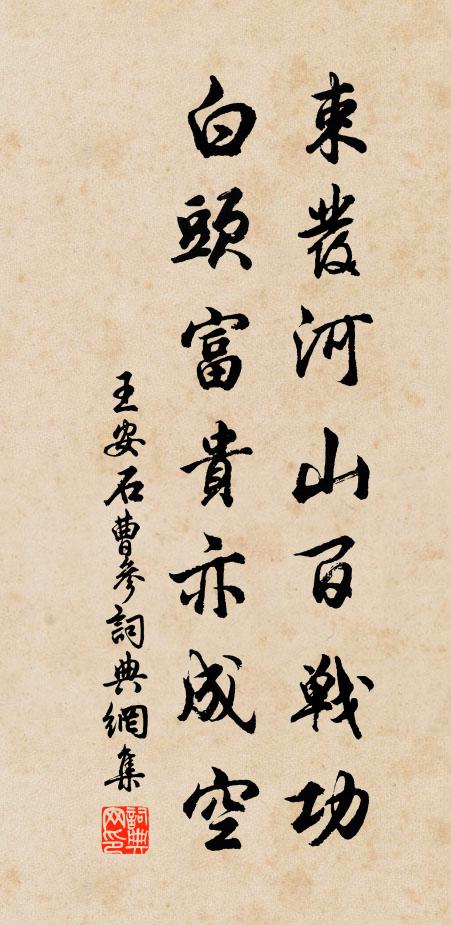 束發河山百戰功
白頭富貴亦成空
王安石曹參詞典網集
詞典网印